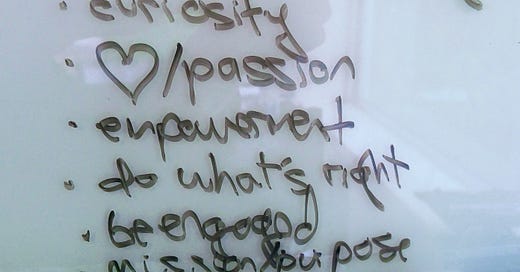 · curiosity
· ♡/passion
· empowerment
· do what's right
· be good
· mission/purpose